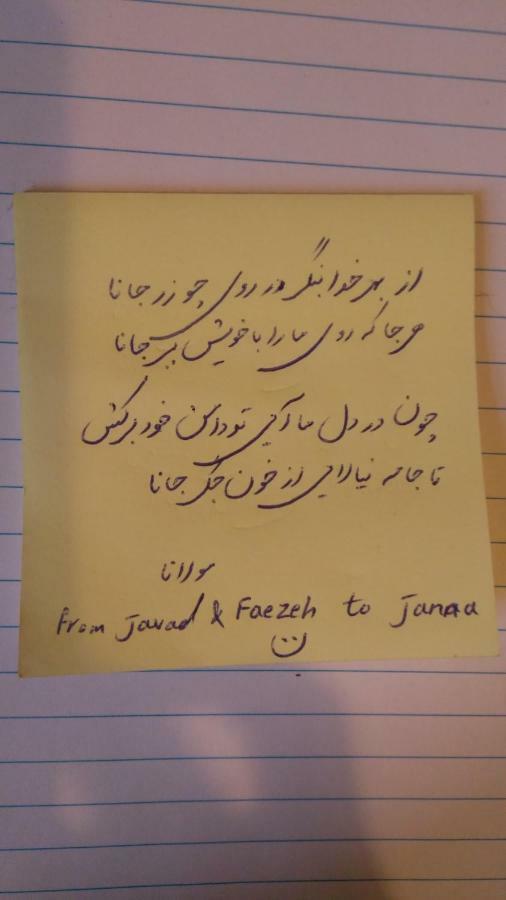 از بهر خدا بنگر در روی چو زر جانا
هر جا که روی ما را با خویش ببر جانا
چون در دل ما آیی تو دامن خود برکش
تا جامه نیالایی از خون جگر جانا
مولانا
From Javad & Faezeh to Janaa